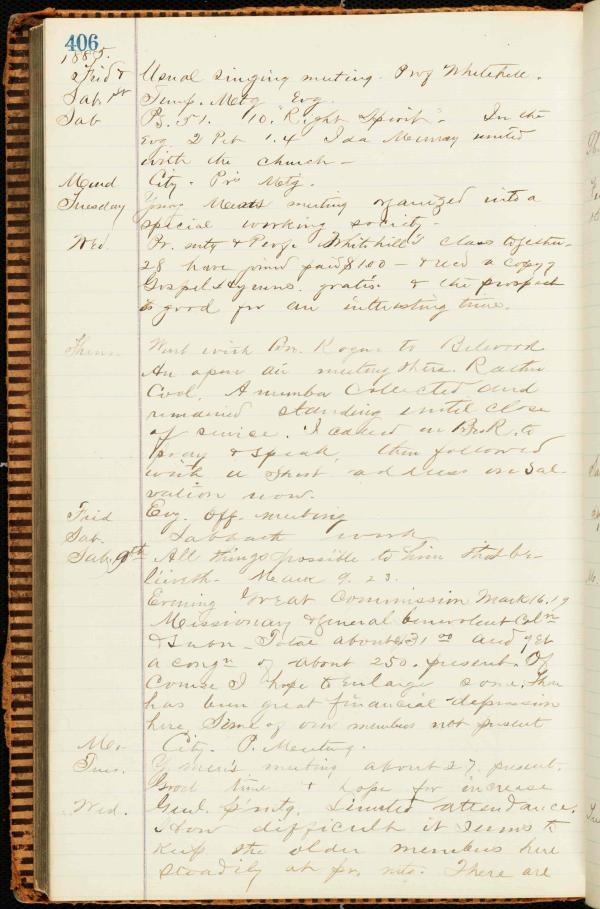 406
1885.
Frid & Usual singing meeting. Prof Whitehill.
Sab 1st Temp. Metg Evg.
Sab Ps. 51. 10. Right Spirit - In the
Evg 2 Pet 1.4 Ida Murray united
with the church -
Mond City. Prs Metg.
Tuesday Young Mens meeting organized into a
special working society -
Wed. Pr. mtg & Profs Whitehill's class together.
28 have joined paid $1 00 - & recd a copy of
Gospel Hymns. gratis. & the prospect
is good for an interesting time.
Thurs. Went with Bro. to
An open air meeting there. Rather
Cool. A number collected and
remained standing until close
of service. I called on Bro R. to
pray & speak, then followed
with a short address on Sal-
vation now.
Frid Evg. Off. meeting
Sab. Sabbath work
Sab. 9th All things possible to him that be-
lieveth. Mark 9. 23.
Evening Great Commission Mark 16. 19
Missionary & general benevolent Coln
& Subn - Total about $31 00 and yet
a congn of about 250. present. Of
Course I hope to enlarge some. There
has been great financial depression
here. Some of our members not present
Mo City. P. Meeting.
Tues. Y men's meeting about 27. present.
Good time & hope for increase
Wed. Genl. p mtg. Limited attendance.
How difficult it seems to
keep the older members here
steadily at pr. mts. There are